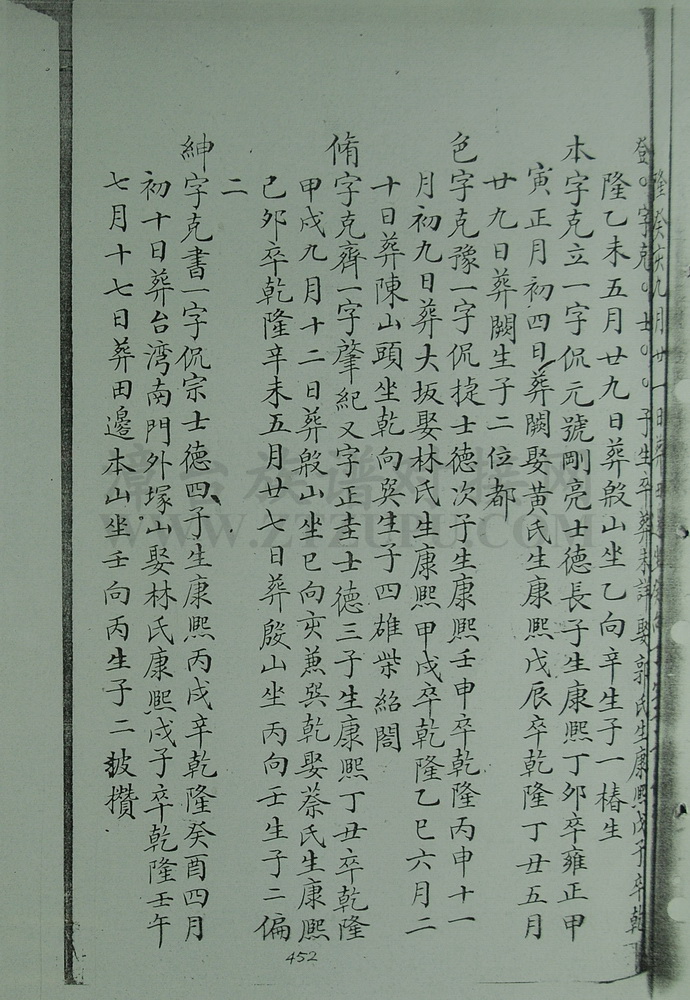 隆癸亥九月廿一日葬
登。字克。士。。子生卒葬未詳娶郭氏生康熙戊子卒乾
隆乙未五月廿九日葬殷山坐乙向辛生子一椿生
本字克立一字侃元號剛亮士德長子生康熙丁卯卒雍正甲
寅正月初四日葬闕娶黃氏生康熙戊辰卒乾隆丁丑五月
廿九日葬闕生子二位都
色字克豫一字侃捷士德次子生康熙壬申卒乾隆丙申十一
月初九日葬大坂娶林氏生康熙甲戌卒乾隆乙巳六月二
十日葬陳山頭坐乾向巽生子四雄柴紹閣
脩字克齊一字肇紀又字正圭士德三子生康熙丁丑卒乾隆
甲戌九月十二日葬殷山坐巳向亥兼巽乾娶蔡氏生康熙
己夘卒乾隆辛未五月廿七日葬殷山坐丙向壬生子二偏
二
紳字克書一字侃宗士德四子生康熙丙戌卒乾隆癸酉四月
初十日葬台湾南門外塚山娶林氏康熙戊子卒乾隆壬午
七月十七日葬田邊本山坐壬向丙生子二皷攢
452
WWW.ZTZUPU.COM